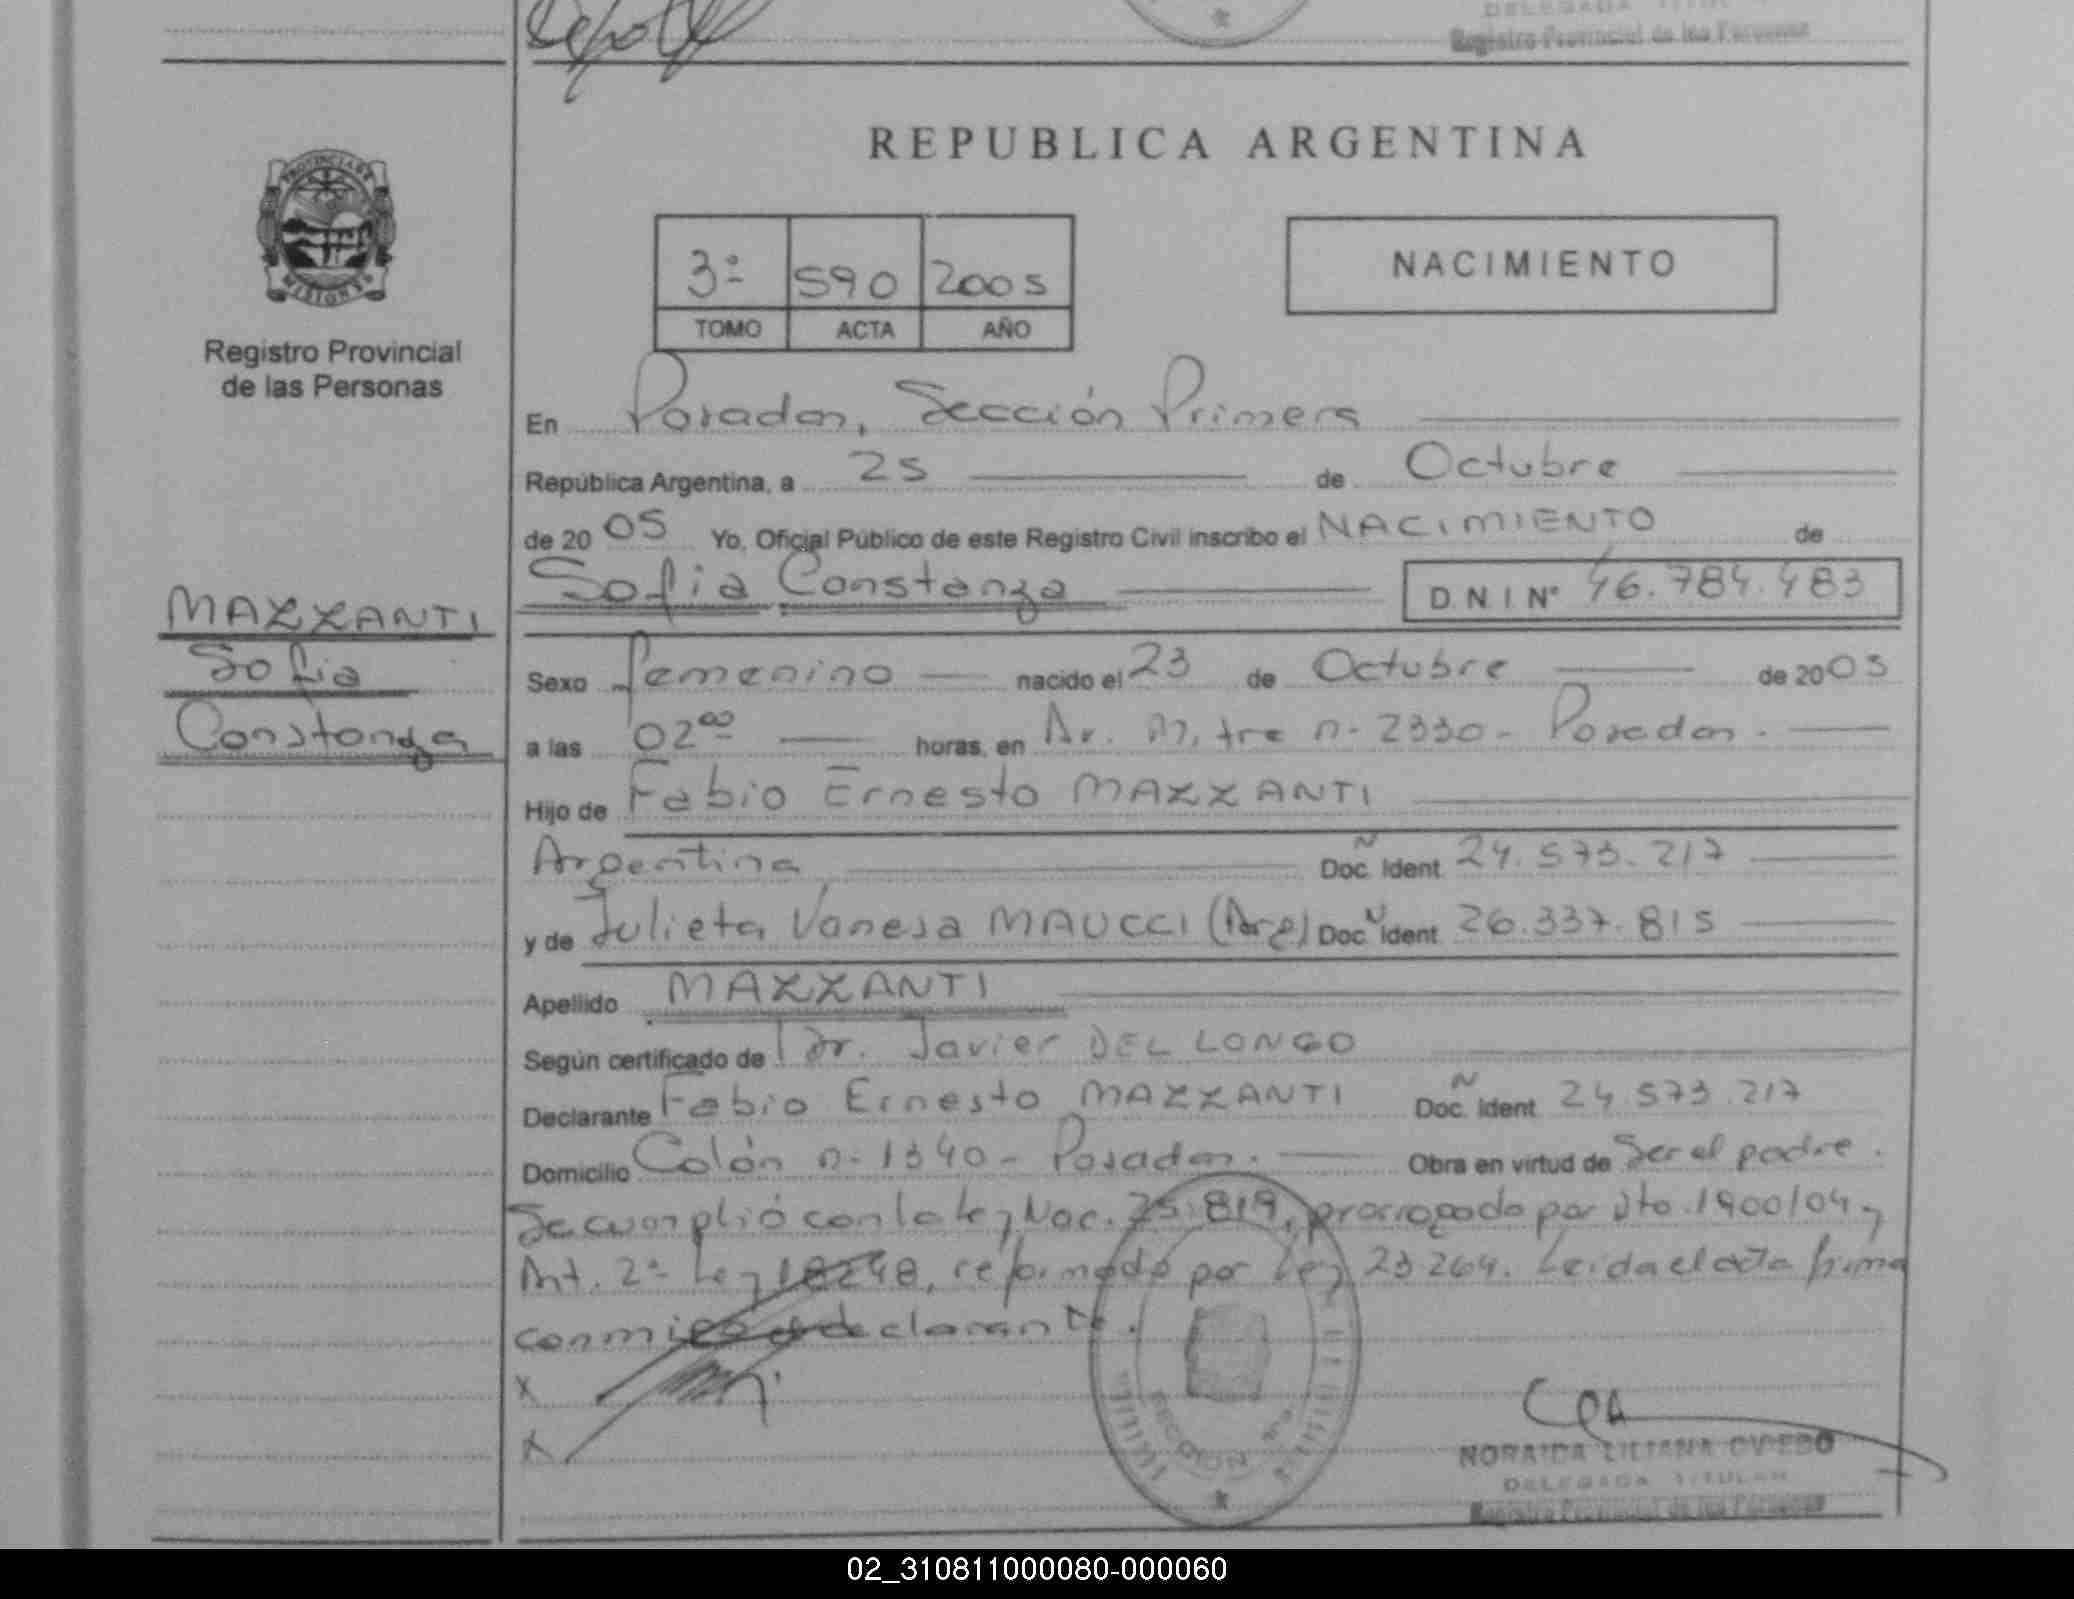 DELEGADA TITULAR
Registro Provincial de las Personas
PROVINCIA DE
MISIONES
Registro Provincial
de las Personas
REPUBLICA ARGENTINA
3º 590 2005
TOMO ACTA AÑO
NACIMIENTO
En Posadas, Sección Primera
República Argentina, a 25 de Octubre
de 2005 Yo, Oficial Público de este Registro Civil inscribo el NACIMIENTO de
Sofia Constanza D.N.I. Nº 46.784.483
MAZZANTI
Sofia
Constanza
Sexo femenino nacido el 23 de Octubre de 2005
a las 02⁰⁰ horas, en Av. Mitre n- 2330- Posadas.
Hijo de Fabio Ernesto MAZZANTI
Argentina Doc. Ident. 24.573.217
y de Julieta Vanesa MAUCCI (Arg) Doc. Ident. 26.337.815
Apellido MAZZANTI
Según certificado de Dr. Javier DEL LONGO
Declarante Fabio Ernesto MAZZANTI Doc. Ident. 24.573.217
Domicilio Colón n- 1340- Posadas. Obra en virtud de Ser el padre.
Se cumplió con la ley Nac. 25.819, prorrogado por Dto. 1900/04 y
Art. 2º Ley 18248, reformado por Ley 23264. Leida el acta firma
conmigo el declarante.
X
X
SECCION
NORAIDA LILIANA OVIEDO
DELEGADA TITULAR
Registro Provincial de las Personas
02_310811000080-000060